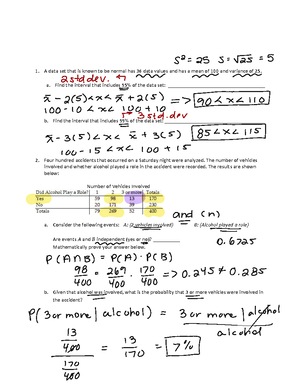 S² = 25 S = √25 = 5
1. A data set that is known to be normal has 36 data values and has a mean of 100 and variance of 25.
2 std dev.
a. Find the interval that includes 95% of the data set:
x̄ - 2(5) < x < x̄ + 2(5) => 90 < x < 110
100 - 10 < x < 100 + 10
3 std. dev
b. Find the interval that includes 99% of the data set:
x̄ - 3(5) < x < x̄ + 3(5) 85 < x < 115
100 - 15 < x < 100 + 15
2. Four hundred accidents that occurred on a Saturday night were analyzed. The number of vehicles
involved and whether alcohol played a role in the accident were recorded. The results are shown
below:
Number of Vehicles Involved
Did Alcohol Play a Role? 1 2 3 or more Totals
Yes 59 98 13 170
No 20 171 39 230
Totals 79 269 52 400
and (∩)
a. Consider the following events: A: (2 vehicles involved) B: (Alcohol played a role)
0.6725
Are events A and B independent (yes or no)
Mathematically prove your answer below.
P(A∩B) = P(A) · P(B)
98/400 = 269/400 · 170/400 => 0.245 ≠ 0.285
b. Given that alcohol was involved, what is the probability that 3 or more vehicles were involved in
the accident?
P(3 or more | alcohol) = 3 or more | alcohol
alcohol
13/400 / 170/400 = 13/170 = 7%